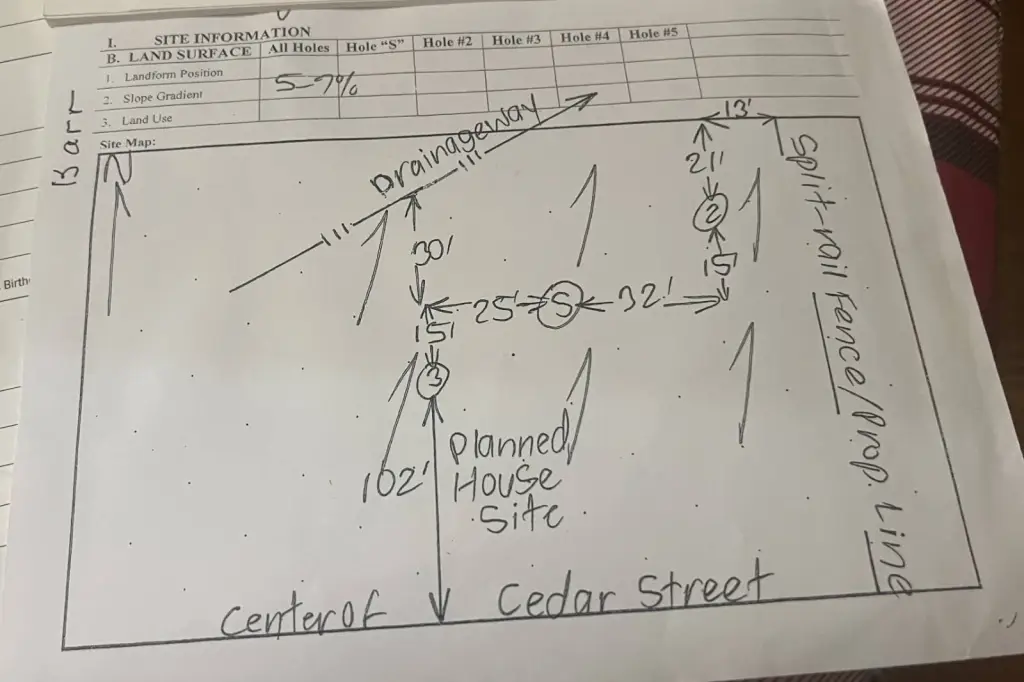 I. SITE INFORMATION
B. LAND SURFACE All Holes Hole "S" Hole #2 Hole #3 Hole #4 Hole #5
1. Landform Position
2. Slope Gradient 5-7%
3. Land Use
Site Map:
Barr
N
Drainageway
13'
21'
2
15'
30'
25' S 32'
15'
3
102'
Planned
House
Site
Split-rail Fence/Prop. Line
Center of Cedar Street
Birth